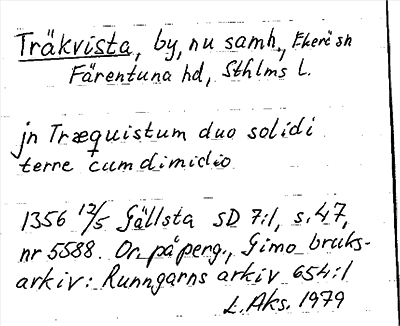 Träkvista, by, nu samh., Ekerö sn
Färentuna hd, Sthlms L.
jn Træquistum duo solidi
terre cum dimidio
1356 12/5 Gällsta SD 7:1, s. 47,
nr 5588. Or. på perg., Gimo bruks-
arkiv: Runngarns arkiv 654:1
L. Aks. 1979